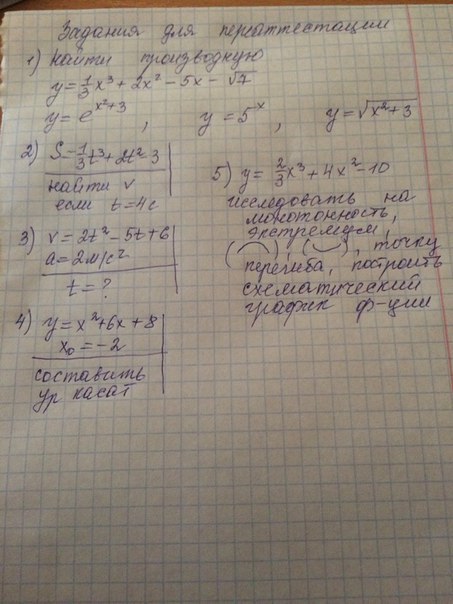 Задания для переаттестации
1) найти производную
y = 1/3 x³ + 2x² - 5x - √7
y = e^(x²+3), y = 5^x, y = √(x²+3)
2) S = 1/3 t³ + 2t² - 3
найти v
если t = 4с
3) v = 2t² - 5t + 6
a = 2м/с²
t = ?
4) y = x² + 6x + 8
x₀ = -2
составить
ур касат
5) y = 2/3 x³ + 4x² - 10
исследовать на
монотонность,
экстремум,
(⌒), (⌣), точку
перегиба, построить
схематический
график ф-ции